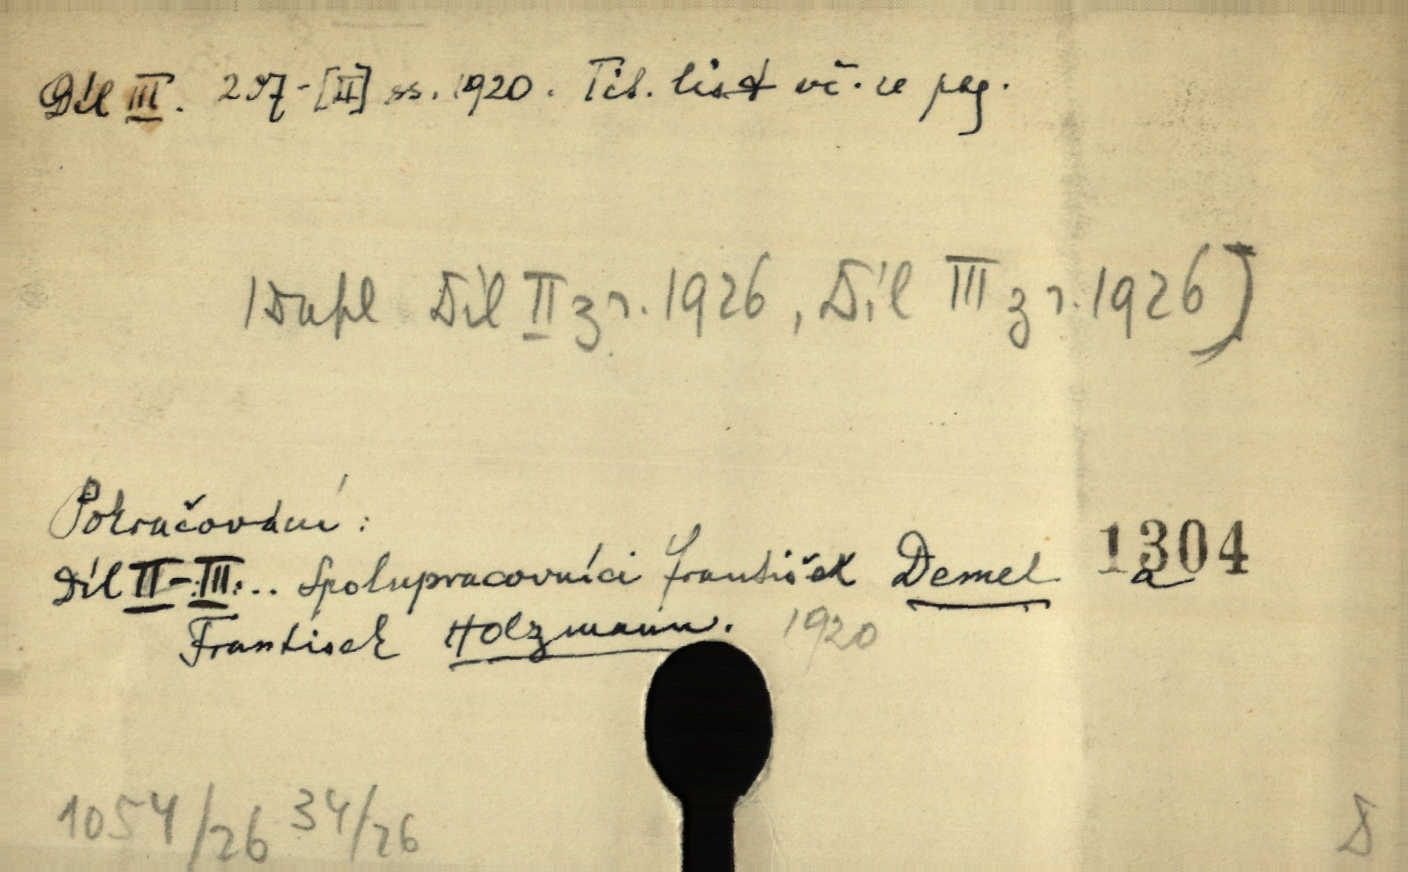 Díl III. 297-[II] ss. 1920. Tit. list vč. ve pag.
(Dupl Díl II z r. 1926, Díl III z r. 1926)
Pokračování:
Díl II-III... Spolupracovníci František Demel a
1304
František Holzmann. 1920
1054/26 34/26
8